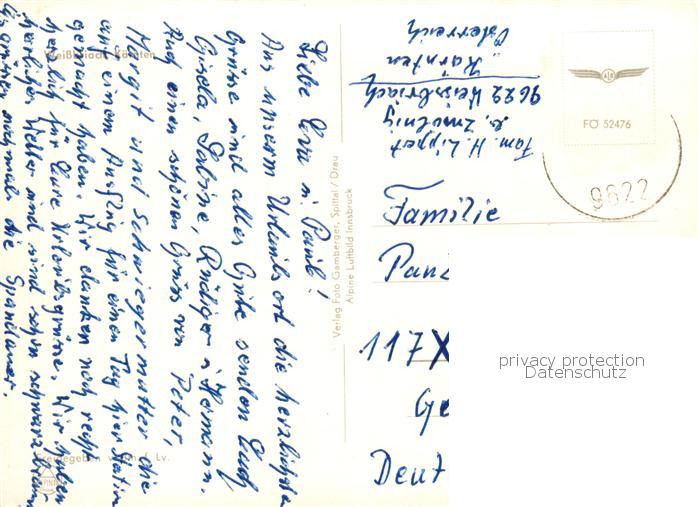 Liebe Erni u. Paul!
Aus unserm Urlaubsort die herzlichsten
Grüsse und alles Gute senden Euch
Gisela, Sabine, Rüdiger u. Hermann.
Auch einen schönen Gruss von Peter,
Margit und Schwiegermutter die
auf einem Ausflug für einen Tag hier Station
gemacht haben. Wir danken noch recht
herzlich für Eure Urlaubsgrüsse. Wir haben
herrliches Wetter und sind schon schwarzbraun.
Es grüssen nochmals die Spandauer.
Weißbriach, Kärnten
Freigegeben v. Lv.
ALPINE
Verlag Foto Gamberger, Spittal / Drau
Alpine Luftbild Innsbruck
Fam. H. Lippert
b. Zmölnig
9622 Weissbriach
Kärnten
Österreich
FÖ 52476
9622
Familie
Pan
117X
Ge
Deut
privacy protection
Datenschutz